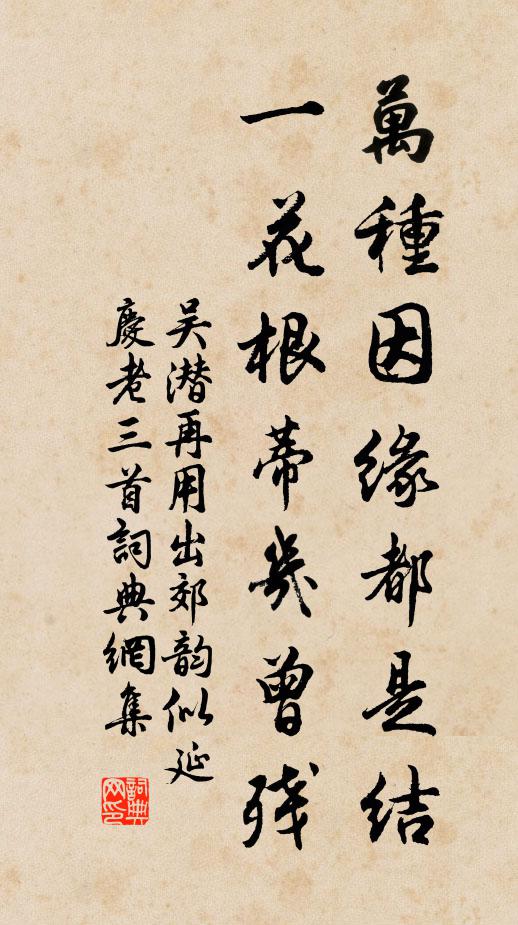 萬種因緣都是結
一花根蒂幾曾殘
吴潜再用出郊韵似延
慶老三首詞典網集
詞典网印